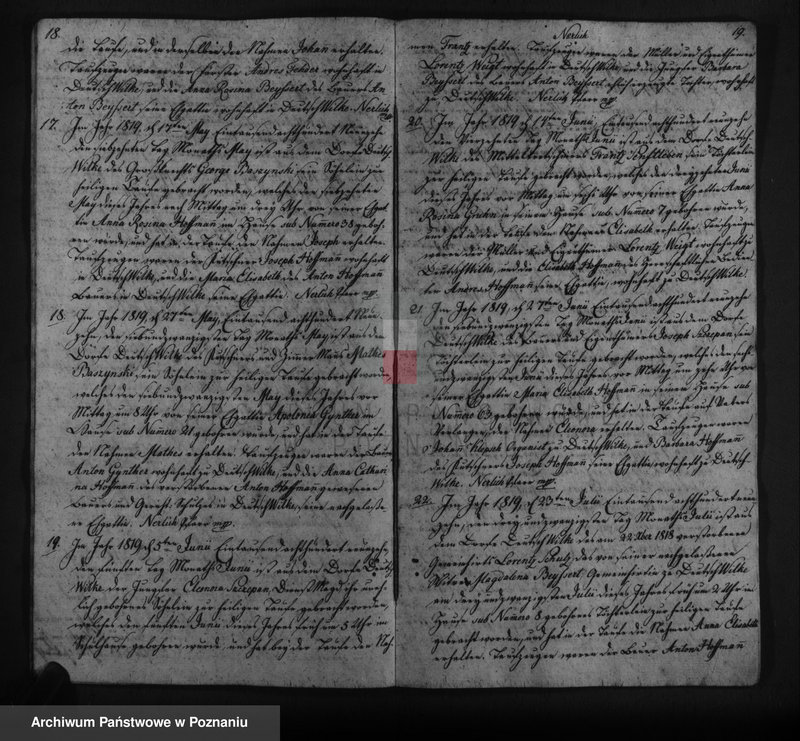 18.
die Taufe, und in derselben den Nahmen Johan erhalten.
Taufzeugen waren der Förster Andres wohnhaft in
DeutschWilke, und die Anna Rosina Beyssert des Bauers An-
ton Beyssert seine Egattin wohnhaft in DeutschWilke. Nerlich
17. Im Jahr 1819, d 17ten May Eintausendachthundert Neunzehn
den siebzehnten Tag Monaths May ist aus dem Dorfe Deutsch
Wilke des Großknechts George Baszynski sein Söhnlein zur
heiligen Taufe gebracht worden, welches den siebzehnten
May dieses Jahres nach Mittag um drey Uhr von seiner Egat
tin Anna Rosina Hoffman im Hause sub Numero 38 geboh-
ren wurde, und hat in der Taufe den Nahmen Joseph erhalten.
Taufzeugen waren der Joseph Hoffman wohnhaft
in DeutschWilke, und die Maria Elisabeth des Anton Hoffman
Bauers in DeutschWilke, seine Egattin. Nerlich Pfarr mp.
18. Im Jahr 1819, d 27ten May, Eintausendachthundert Neun-
zehn, den siebenundzwanzigsten Tag Monaths May ist aus dem
Dorfe DeutschWilke des und Mathes
Baszynski sein Söhnlein zur heiligen Taufe gebracht worden,
welches den siebenundzwanzigsten May dieses Jahres vor
Mittag um 8 Uhr von seiner Egattin Apolonia Gynther im
Hause sub Numero 21 gebohren wurde, und hat in der Taufe
den Nahmen Mathes erhalten. Taufzeugen waren der Bauer
Anton Gynther wohnhaft zu DeutschWilke, und die Anna Catharі
na Hoffman des verstorbenen Anton Hoffman gewesenen
Bauers und Gericht. Schulzes in DeutschWilke, seine nachgelaße
ne Egattin. Nerlich Pfarr mp.
19. Im Jahr 1819, d 5ten Junii Eintausendachthundert neunzehn,
den fünften Tag Monaths Junii ist aus dem Dorfe Deutsch
Wilke der Jungfer Eleonora Sczepan, DienstMagd ihr unehe
lich gebohrenes Söhnlein zur heiligen Taufe gebracht worden,
welches den fünften Junii dieses Jahres früh um 5 Uhr im
Schulhause gebohren wurde, und hat bey der Taufe den Nah-
Nerlich
19.
men Frantz erhalten. Taufzeugen waren der Müller und Eigenthümer
Lorentz Weigt wohnhaft in DeutschWilke, und die Jungfer Barbara
Beyssert des Bauers Anton Beyssert Tochter, wohnhaft
zu DeutschWilke. Nerlich Pfarr mp.
20. Im Jahr 1819, d 14ten Junii, Eintausendachthundert neunzehn
den Vierzehnten Tag Monaths Junii ist aus dem Dorfe Deutsch
Wilke des Frantz sein Töchterlein
zur heiligen Taufe gebracht worden, welches den dreyzehnten Junii
dieses Jahres vor Mittag um Uhr von seiner Egattin Anna
Rosina in seinem Hause sub Numero 7 gebohren wurde,
und hat in der Taufe den Nahmen Elisabeth erhalten. Taufzeugen
waren der Müller und Eigenthümer Lorentz Weigt wohnhaft zu
DeutschWilke, und die Elisabeth Hoffman, des
Andres Hoffman, seine Egattin, wohnhaft zu DeutschWilke.
21. Im Jahr 1819, d 27ten Junii, Eintausendachthundert neunzehn
den siebenundzwanzigsten Tag Monaths Junii ist aus dem Dorfe
DeutschWilke des Bauers und Eigenthümers Joseph Sczepan sein
Töchterlein zur heiligen Taufe gebracht worden, welches den
undzwanzigsten Junii dieses Jahres, vor Mittag um zehn Uhr von
seiner Egattin Maria Elisabeth Hoffman in seinem Hause sub
Numero 63 gebohren wurde, und hat in der Taufe auf Vaters
Verlangen, den Nahmen Eleonora erhalten. Taufzeugen waren
Johan Organist zu DeutschWilke, und Barbara Hoffman
des Joseph Hoffman seine Egattin, wohnhaft zu Deutsch
Wilke. Nerlich Pfarr mp.
22. Im Jahr 1819, d 23ten Julii Eintausendachthundert neun
zehn, den dreyundzwanzigsten Tag Monaths Julii ist aus
dem Dorfe DeutschWilke des am 22 Xber 1818 verstorbenen
Lorentz Schutz des von seiner nachgelaßenen
Wittwe Magdalena Beyssert, zu DeutschWilke
am dreyundzwanzigsten Julii dieses Jahres früh um 2 Uhr im
Hause sub Numero 8 gebohrenes Töchterlein zur heiligen Taufe
gebracht worden, und hat in der Taufe die Nahmen Anna Elisabeth
erhalten. Taufzeugen waren der Bauer Anton Hoffman
Archiwum Państwowe w Poznaniu